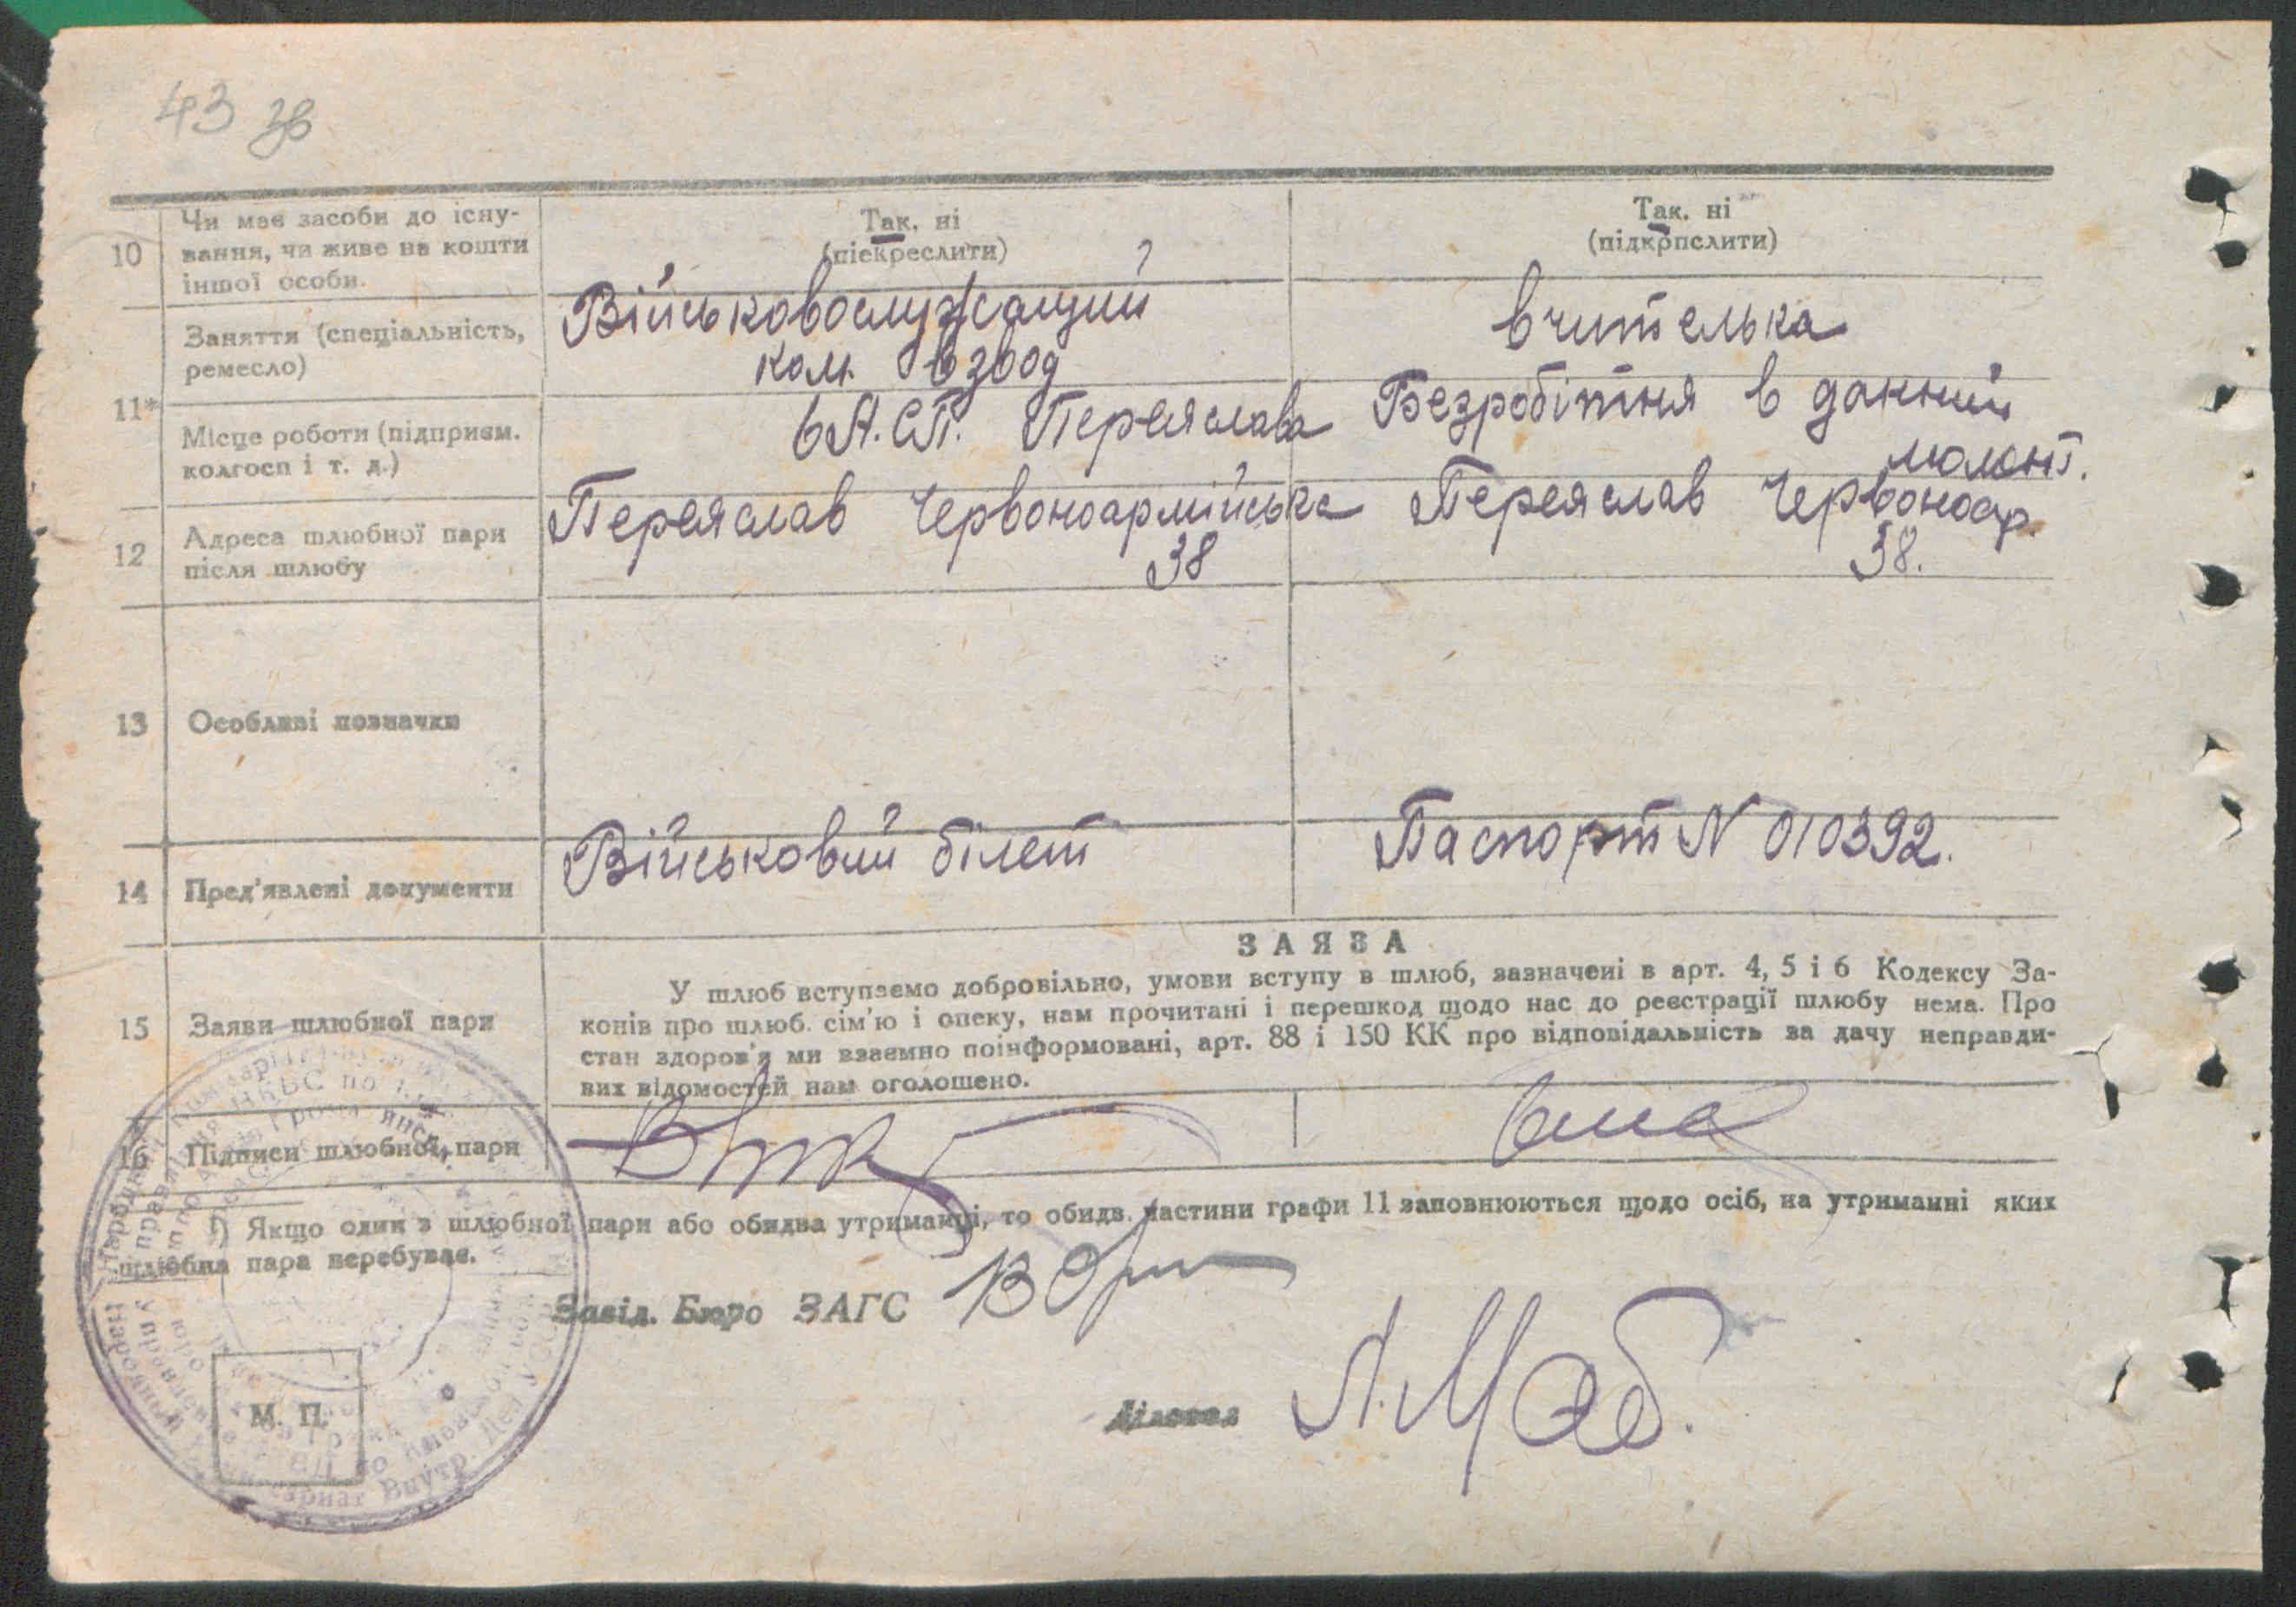 43 зв
10
Чи має засоби до існу-
вання, чи живе на кошти
іншої особи.
Так, ні
(піекреслити)
Так. ні
(підкрпслити)
11*
Заняття (спеціальність,
ремесло)
Військовослужащий
ком. взвод
вчителька
Місце роботи (підприєм.
колгосп і т. д.)
6 А.СП. Переяслава
Безробітня в данний
момент.
12
Адреса шлюбної пари
після шлюбу
Переяслав Червоноармійська
38
Переяслав Червоноар.
38.
13
Особливі позначки
14
Пред'явлені документи
Військовий білет
Паспорт N 010392.
15
Заяви шлюбної пари
ЗАЯЗА
У шлюб вступаємо добровільно, умови вступу в шлюб, зазначені в арт. 4, 5 і 6 Кодексу За-
конів про шлюб. сім'ю і опеку, нам прочитані і перешкод щодо нас до реєстрації шлюбу нема. Про
стан здоров'я ми взаємно поінформовані, арт. 88 і 150 КК про відповідальність за дачу неправди-
вих відомостей нам оголошено.
16
Підписи шлюбної пари
*) Якщо один з шлюбної пари або обидва утриманці, то обидв. частини графи 11 заповнюються щодо осіб, на утриманні яких
шлюбна пара перебуває.
Завід. Бюро ЗАГС
М. П.